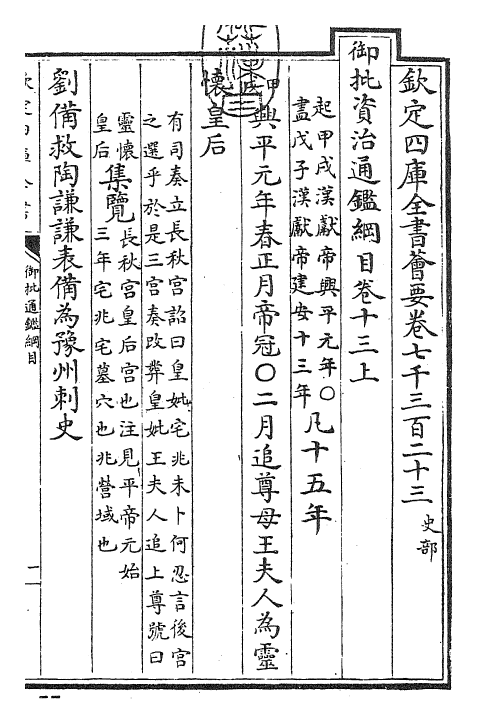 欽定四庫全書薈要卷七千三百二十三 史部
御批資治通鑑綱目卷十三上
起甲戌漢獻帝興平元年〇
盡戊子漢獻帝建安十三年
凡十五年
興平元年春正月帝冠〇二月追尊母王夫人為靈
懷皇后
有司奏立長秋宮詔曰皇妣宅兆未卜何忍言後宮
之選乎於是三宮奏改葬皇妣王夫人追上尊號曰
靈懷
皇后
集覽
長秋宮皇后宮也注見平帝元始
三年宅兆宅墓穴也兆營域也
劉備救陶謙謙表備為豫州刺史
御批通鑑綱目
一